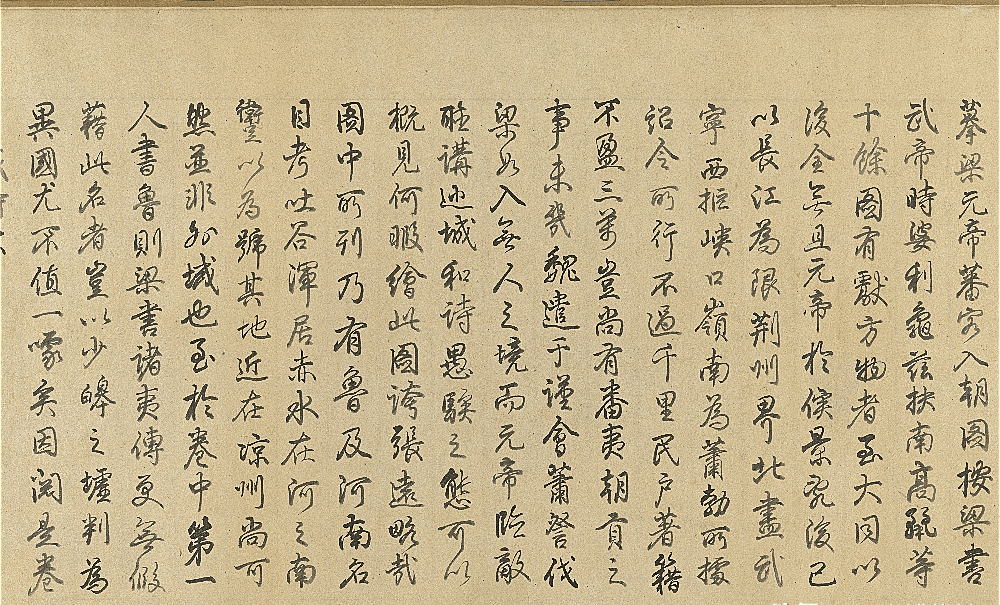 摹梁元帝蕃客入朝圖按梁書
武帝時婆利龜茲扶南高麗等
十餘國有獻方物者至大同以
後全無且元帝於侯景亂後已
以長江為限荊州界北盡武
寧西拒峽口嶺南為蕭勃所據
詔令所行不過千里民戶著籍
不盈三萬豈尚有番夷朝貢之
事未幾魏遣于謹會蕭詧伐
梁如入無人之境而元帝臨敵
猶講述城和詩愚騃之態可以
概見何暇繪此圖誇張遠略哉
圖中所列乃有魯及河南名
目考吐谷渾居赤水在河之南
蠒以為號其地近在涼州尚可
然並非外域也至於卷中第一
人書魯則梁書諸夷傳更無假
藉此名者豈以少皞之墟判為
異國尤不值一噱矣因閱是卷